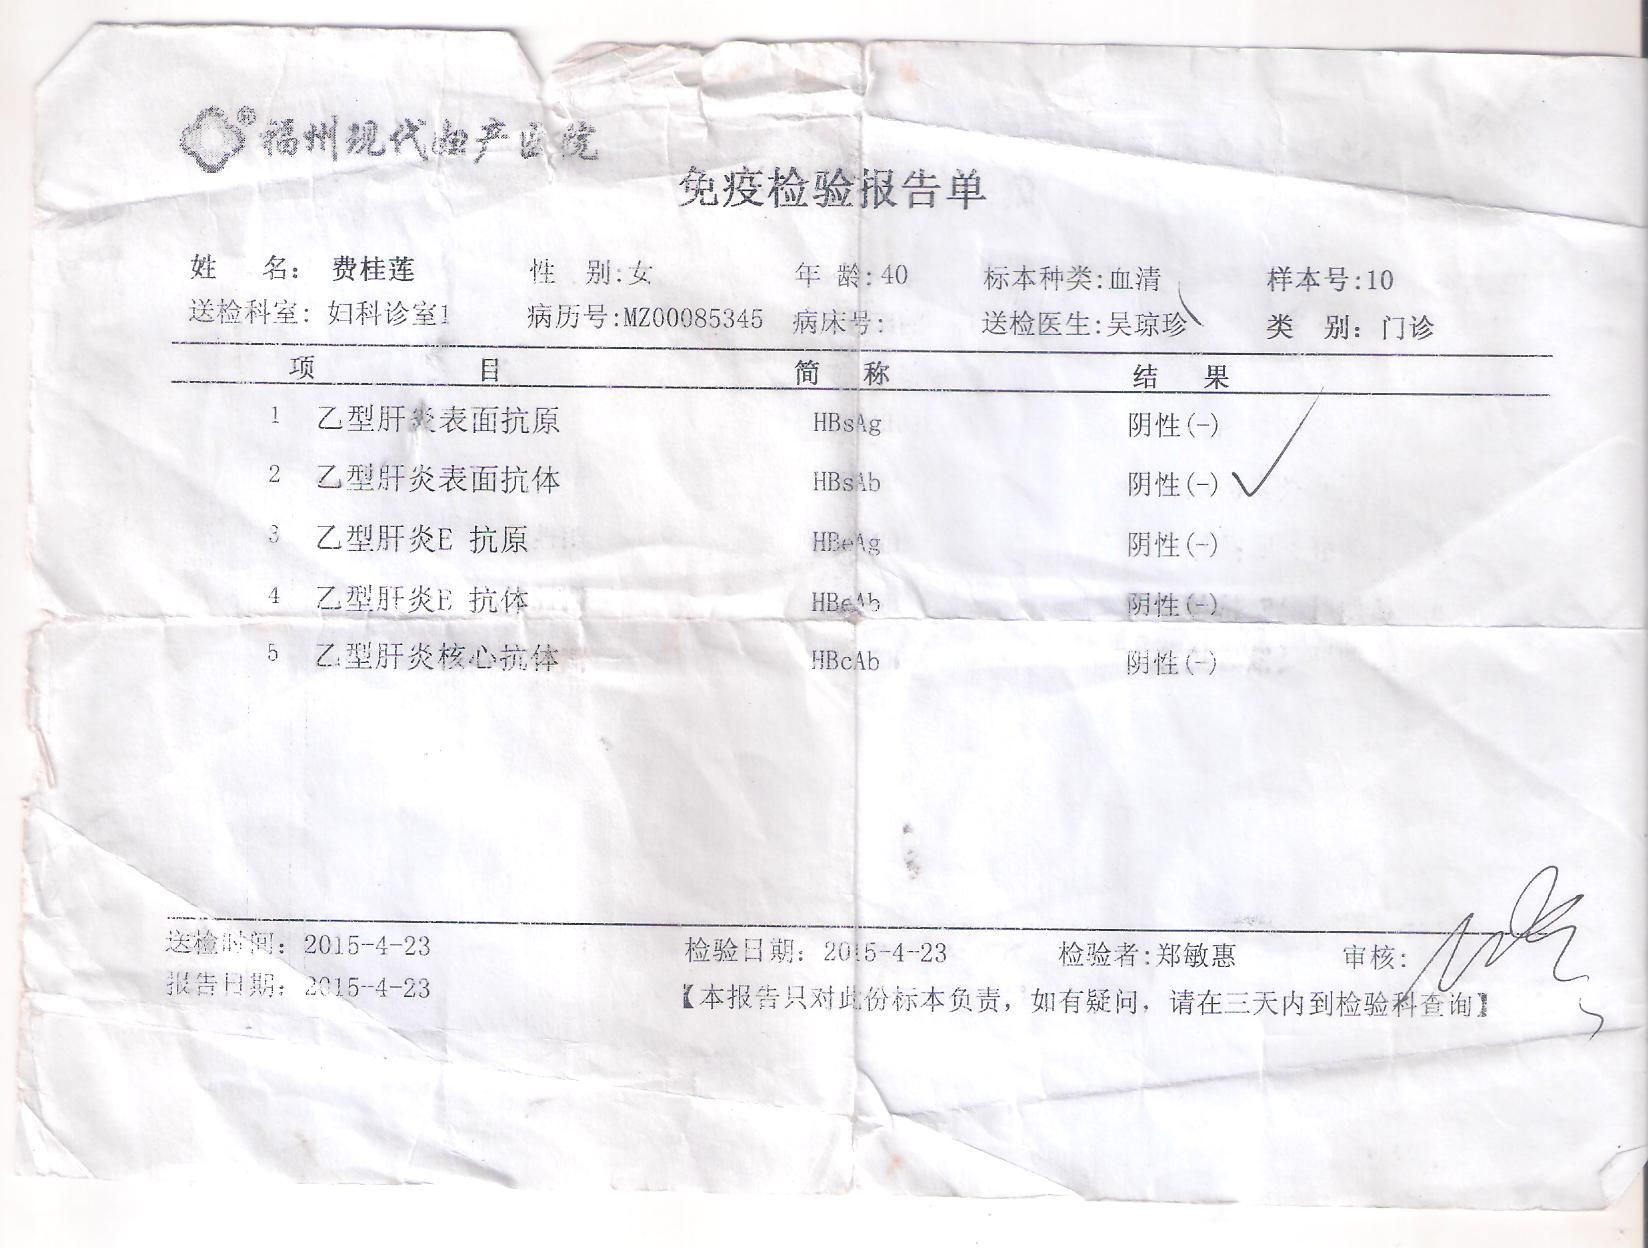 福州现代妇产医院
免疫检验报告单
姓 名: 费桂莲 性 别:女 年 龄:40 标本种类:血清 样本号:10
送检科室: 妇科诊室1 病历号:MZ00085345 病床号: 送检医生:吴琼珍 类 别: 门诊
项 目 简 称 结 果
1 乙型肝炎表面抗原 HBsAg 阴性(-)
2 乙型肝炎表面抗体 HBsAb 阴性(-)
3 乙型肝炎E 抗原 HBeAg 阴性(-)
4 乙型肝炎E 抗体 HBeAb 阴性(-)
5 乙型肝炎核心抗体 HBcAb 阴性(-)
送检时间: 2015-4-23 检验日期: 2015-4-23 检验者:郑敏惠 审核:
报告日期: 2015-4-23 【本报告只对此份标本负责，如有疑问，请在三天内到检验科查询】